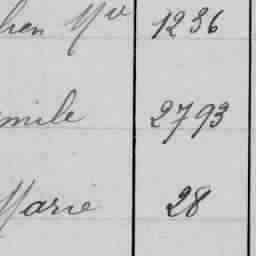 hen Mce 1236
mile 2793
Marie 28